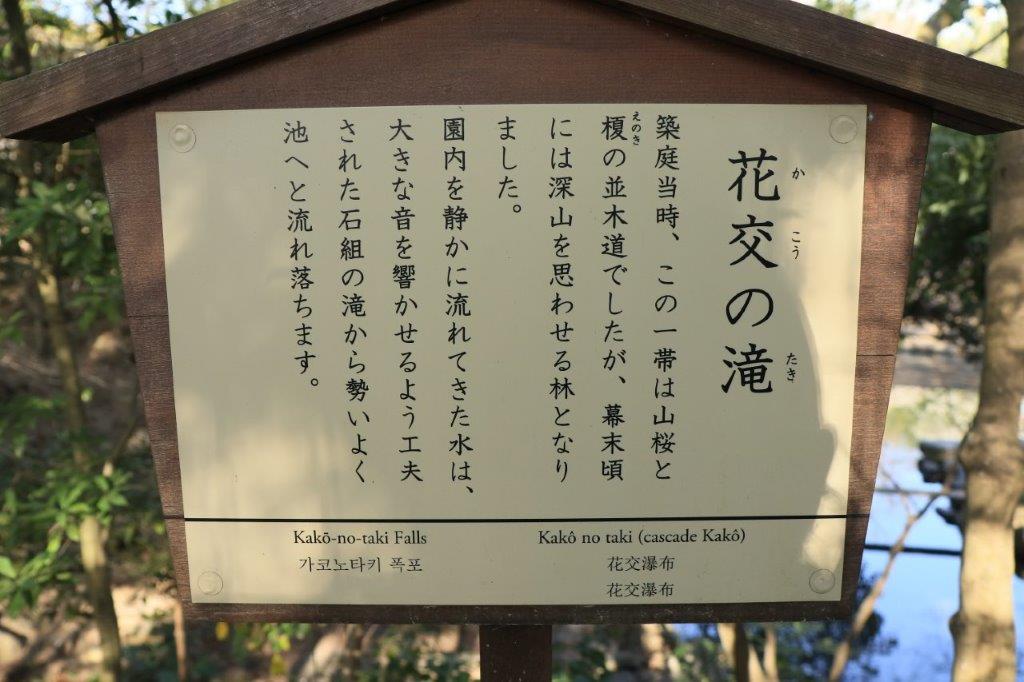 花交の滝
かこう たき
築庭当時、この一帯は山桜と
榎の並木道でしたが、幕末頃
えのき
には深山を思わせる林となり
ました。
園内を静かに流れてきた水は、
大きな音を響かせるよう工夫
された石組の滝から勢いよく
池へと流れ落ちます。
Kakō-no-taki Falls
가코노타키 폭포
Kakô no taki (cascade Kakô)
花交瀑布
花交瀑布